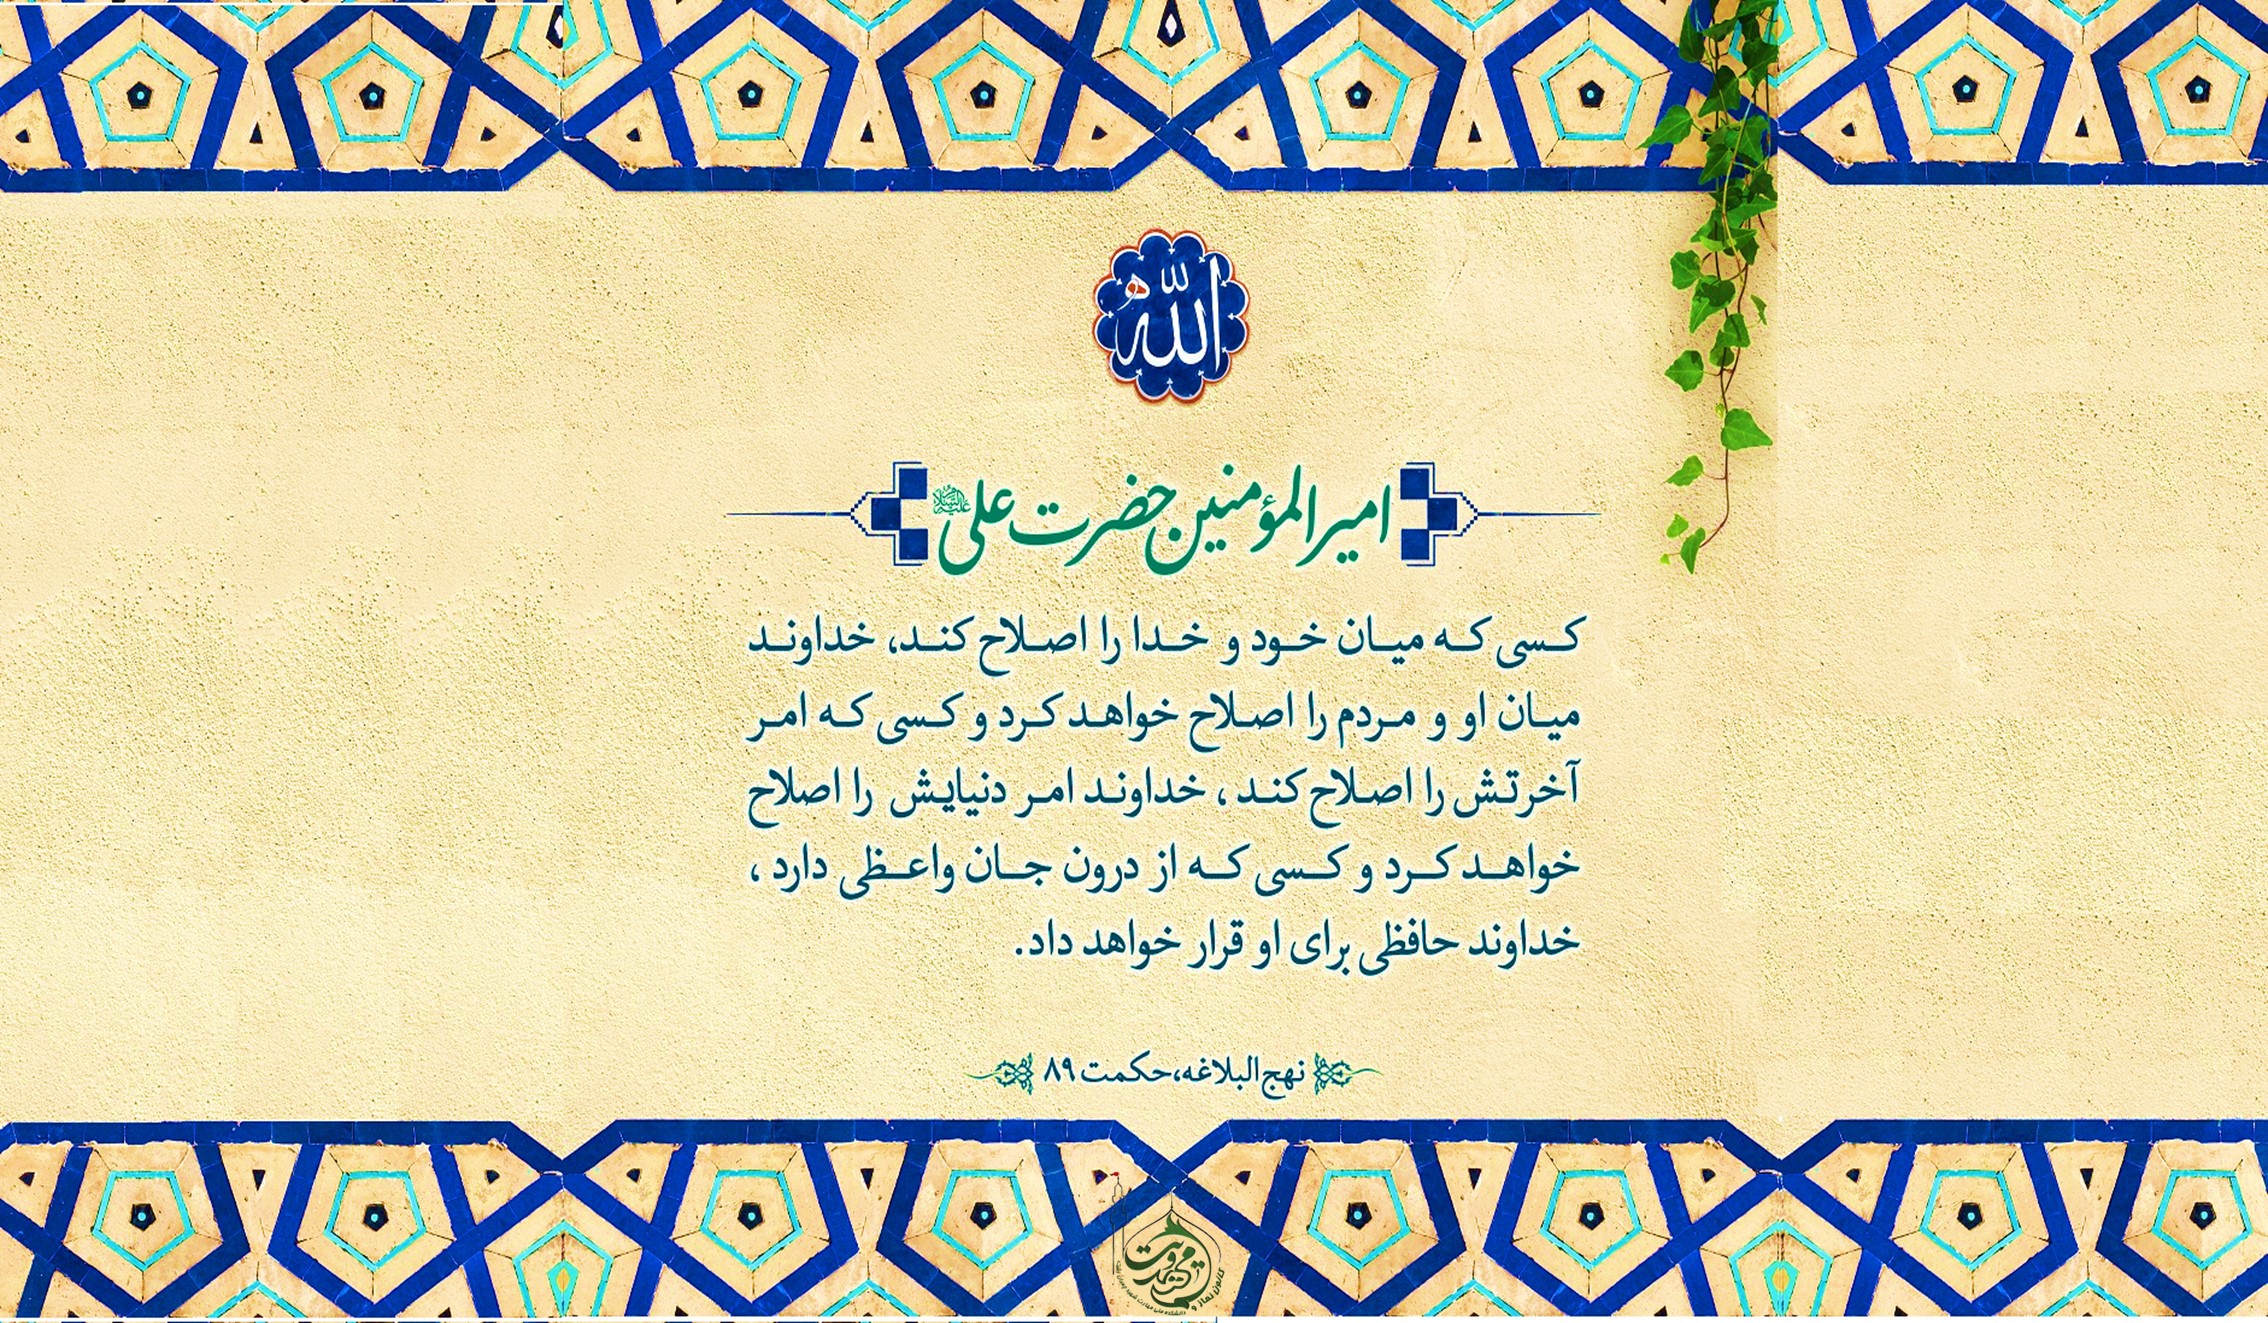 الله
امیرالمؤمنین حضرت علی علیه‌السلام
کسی که میان خود و خدا را اصلاح کند، خداوند
میان او و مردم را اصلاح خواهد کرد و کسی که امر
آخرتش را اصلاح کند، خداوند امر دنیایش را اصلاح
خواهد کرد و کسی که از درون جان واعظی دارد،
خداوند حافظی برای او قرار خواهد داد.
نهج‌البلاغه، حکمت ۸۹
مهدویت
کانون نماز و